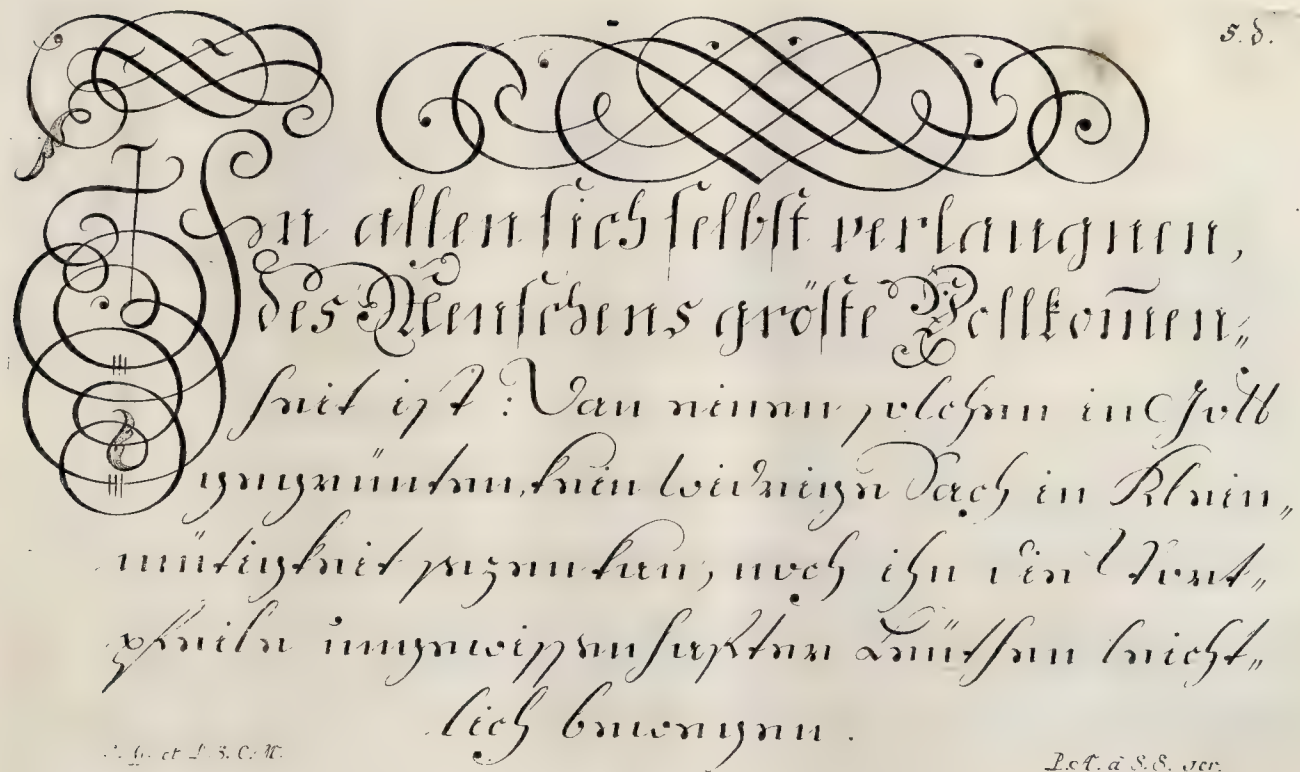 S. d.
In allen sich selbst verlaugnen,
des Menschens gröste Vollkom̄en„
heit ist: Dan einen solchen in Gott
gegrünten, kein widrige Sach in Klein„
mütigkeit sezen kan, noch ihn die Wort„
pfeile ungewissenhafter Leüthen leicht„
lich bewegen.
et C. M.
P. A. à S. S. scr.